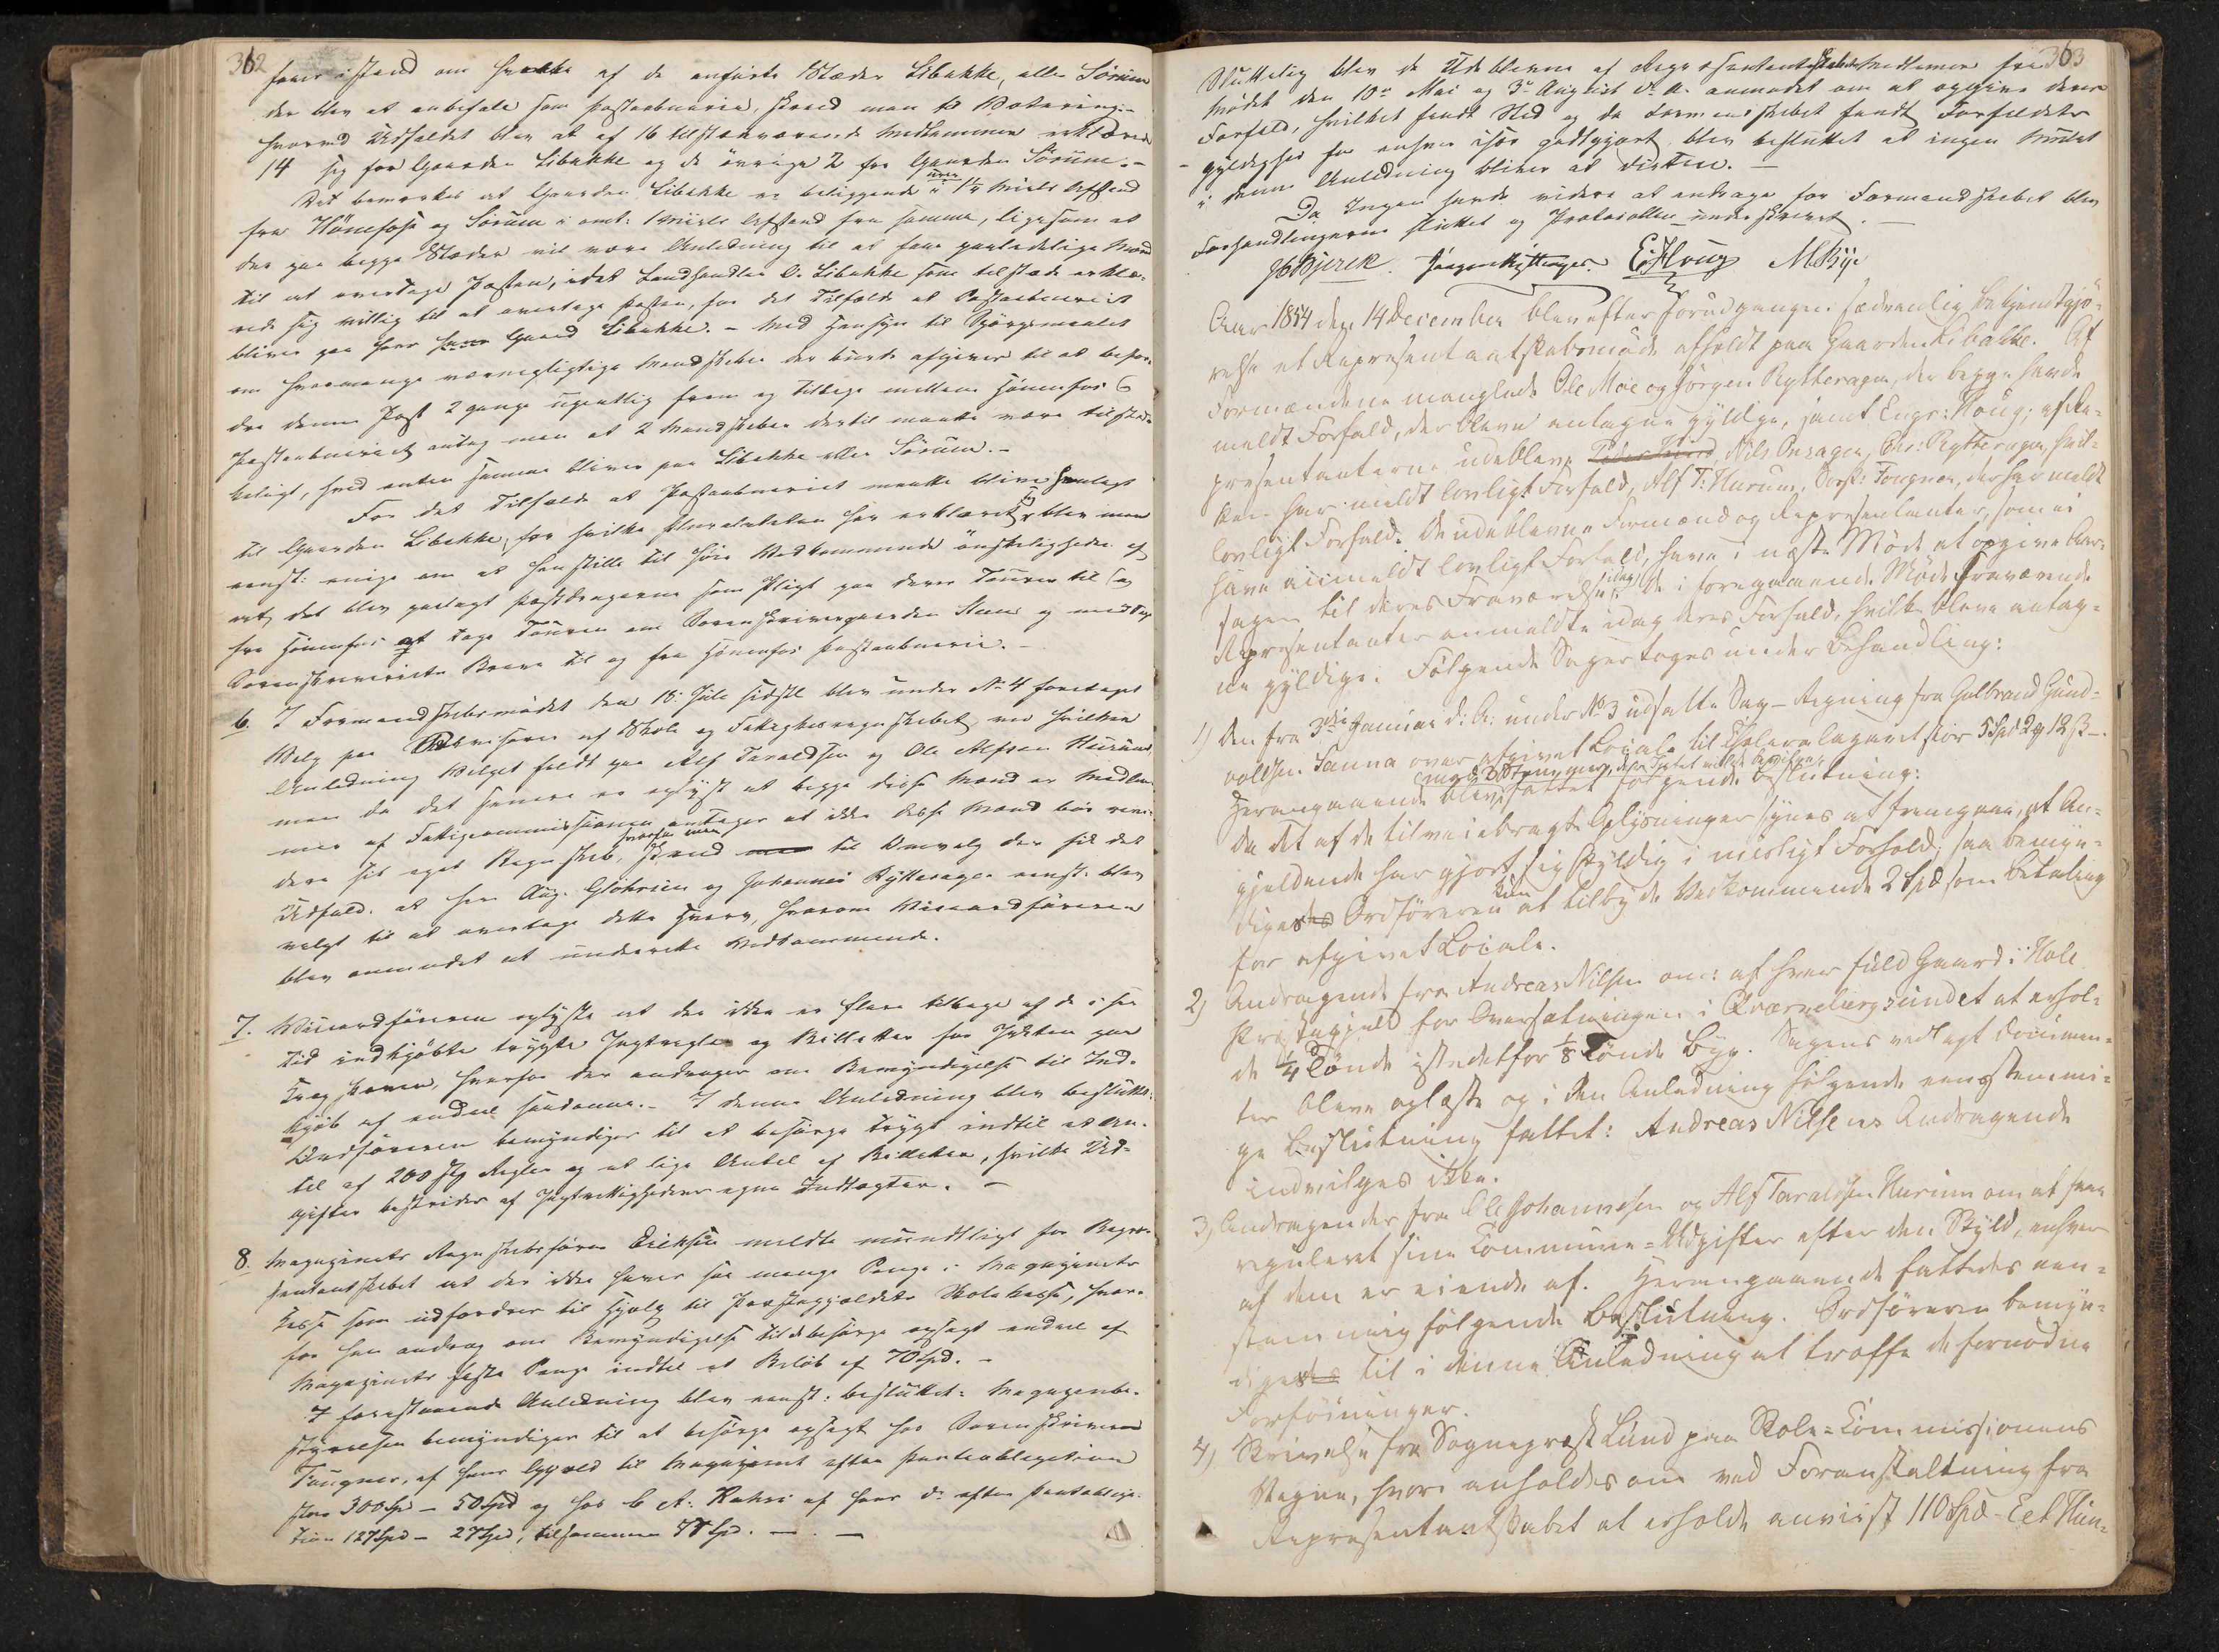 362
foreslaaes om hvilke af de anførte Stæder Libakke, eller Sørum
der blev at anbefale som Postaabneri, skred man til Votering,
hvorved Udfaldet blev at af 16 tilstedeværende Medlemmer erklærede
14 sig for Gaarden Libakke og de øvrige 2 for Gaarden Sørum. -
Det bemærkes at Gaarden Libakke er beliggende i 1¼ Miils Afstand
fra Hønefos og Sørum i omt: 1 Miils Afstand fra samme, ligesom at
der paa begge Stæder vil være Anledning til at faae paalidelige Mænd
til at overtage Posten, idet Landhandler O. Libakke som tilstæde erklæ-
rede sig villig til at overtage Posten, for det Tilfælde at Postaabneriet
bliver paa hans Gaard Libakke. - Med Hensyn til Spørgsmaalet
om hvormange værnepligtige Mandskaber der burde afgives til at befor-
dre denne Post 2 gange ugentlig frem og tilbage mellem Hønefos &
Postaabneriet antog man at 2 Mandskaber dertil maatte være tilstræk-
keligt, hvad enten samme bliver paa Libakke eller Sørum. -
For det Tilfælde at Postaabneriet maatte blive henlagt
til Gaarden Libakke, for hvilke Pluraliteten har erklæret sig blev man
eenst: enige om at henstille til høie Vedkommende ønskeligheden af
at det blev paalagt Postdragerne som Pligt paa deres Tourer til og
fra Hønefos at tage Touren om Sorenskrivergaarden Stam og medtage
Sorenskriveriets Breve til og fra Hønefos Postaabneri. -
6. I Formandskabsmødet den 18: Juli sidstl. blev under No 4 foretaget
Valg paa Revisorer af Skole og Fattigregnskabet, ved hvilken
Anledning Valget faldt paa Alf Taraldsen og Ole Alfsen Hurum,
men da det senere er oplyst at begge disse Mænd er Medlem-
mer af Fattigcommissionen antages at ikke disse Mænd bør revi-
dere sit eget Regnskab, hvorfor man skred til Omvalg der fik det
Udfald. at Hr. Aug. Gløhrsen og Johannes Rytterager eenst. blev
valgt til at overtage dette Hverv, hvorom Viceordføreren
blev anmodet at underrette Vedkommende.
7. Viceordføreren oplyste at der ikke er flere tilbage af de i sin
Tid indkjøbte trygte Jagtregler og Billetter for Jagten paa
Krogskoven, hvorfor der androges om Bemyndigelse til Ind-
kjøb af endeel saadanne. - I denne Anledning blev besluttet:
Ordføreren bemyndiges til at besørge trygt indtil et An-
tal af 200 Stk Regler og et lige Antal af Billetter, hvilke Ud-
gifter bestrides af Jagtrettighedens egne Indtægter. -
8. Magazinets Regnskabsfører Eriksen meldte mundtligt for Repræ-
sentantskabet at der ikke haves saa mange Penge i Magazinets
Kasse som udfordres til Hjælp til Præstegjeldets Skolekasse, hvor-
for han androg om Bemyndigelse til at besørge opsagt endeel af
Magazinets faste Penge indtil et Beløb af 70 Spd. -
I forestaaende Anledning blev eenst: besluttet: Magazinbe-
styrelsen bemyndiges til at besørge opsagt hos Sorenskriveren
Fougner, af hans Gjeld til Magazinet efter Panteobligation
stor 300 Spd - 50 Spd og hos C A: Rahrs af hans do efter Panteobliga-
tion 127 Spd - 27 Spd, tilsammen 77 Spd. -
363
Sluttelig blev de Udeblevne af Repræsentantskabets Medlemmer fra
Mødet den 10de Mai og 3die August d. A. anmodet om at opgive deres
Forfald, hvilket fandt Sted og da Formandskabet fandt Forfaldets
gyldighed for enhver især godtgjort, blev besluttet at ingen Mulct
i denne Anledning bliver at dictere. -
Da Ingen havde videre at andrage for Formandskabet blev
Forhandlingerne sluttet og Protocollen underskrevet. -
Bjerck. Jørgen Rytterager. E. Houg M. Bye
Aar 1854 den 14 December blev efter forudgangen sædvanlig bekjendtgjø-
relse et Repræsentantskabsmøde afholdt paa Gaarden Libakke. Af
Formændene manglede Ole Moe og Jørgen Rytterager, der begge havde
meldt Forfald, der bleve antagne gyldige, samt Engr: Houg; af Re-
præsentanterne udebleve Nils Onsager, Chr: Rytterager, hvil-
ken har meldt lovligt Forfald, Alf T: Hurum, Sorsk: Fougner, der har meldt
lovligt Forfald. De udeblevne Formænd og Repræsentanter, som ei
have anmeldt lovligt Forfald, have i næste Møde at opgive Aar-
sagen til deres Fraværelse idag. De i foregaaende Møde fraværende
Repræsentanter anmeldte idag deres Forfald, hvilke bleve antag-
ne gyldige. Følgende Sager toges under Behandling:
1) Den fra 3die Januar d: A: under No 3 udsatte Sag - Regning fra Gulbrand Gund-
voldsen Sanna over afgivet Locale til Choleralazaret stor 5 Spd 2 24 12 β -.
Herom angaaende blev fattet følgende beslutning:
Da det af de tilveiebragte Oplysninger synes at fremgaae, at An-
gjældende har gjort sig skyldig i uærligt Forhold; saa bemyn-
diges Ordføreren kun at tilbyde Vedkommende 2 Spd som Betaling
for afgivet Locale.
2) Andragende fra Andreas Nilsen om: af hver fuld Gaard i Hole
Præstegjeld for Oversætningen i Qværnbergsundet at erhol-
de ¼ Tønde istedetfor ⅛ Tønde Byg. Sagens vedlagte Documen-
ter bleve oplæste og i den Anledning følgende eenstemmi-
ge Beslutning fattet: Andreas Nilsens Andragende
indvilges ikke.
3) Andragender fra Ole Johannesen og Alf Taraldsen Hurum om at faae
reguleret sine Commune-Udgifter efter den Skyld, enhver
af dem er eiende af. Herom angaaende fattedes een-
stemmig følgende Beslutning. Ordføreren bemyn-
diges til i denne Anledning at træffe de fornødne
Forføininger.
4) Skrivelse fra Sognepræst Lund paa Skole-Commissionens
Vegne, hvori anholdes om ved Foranstaltning fra
Repræsentantskabet at erholde anviist 110 Spd - Eet Hun-